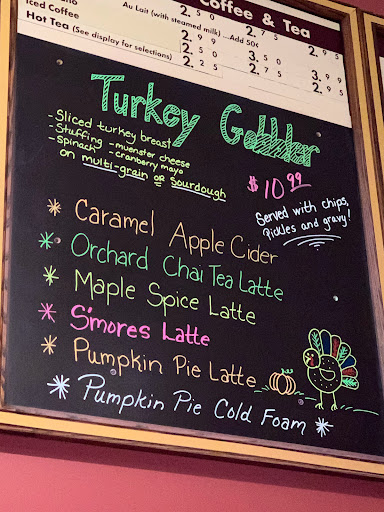 Coffee & Tea
Au Lait (with steamed milk) ...Add 50¢
2.50 2.75 2.95
Iced Coffee 2.99 3.50 3.99
Hot Tea (See display for selections) 2.25 2.75 2.95
Turkey Gobbler
- Sliced turkey breast
- Stuffing - muenster cheese
- Spinach - cranberry mayo
on multi-grain or Sourdough
$10.99
Served with chips,
Pickles and gravy!
* Caramel Apple Cider
* Orchard Chai Tea Latte
* Maple Spice Latte
* S'mores Latte
* Pumpkin Pie Latte
* Pumpkin Pie Cold Foam *